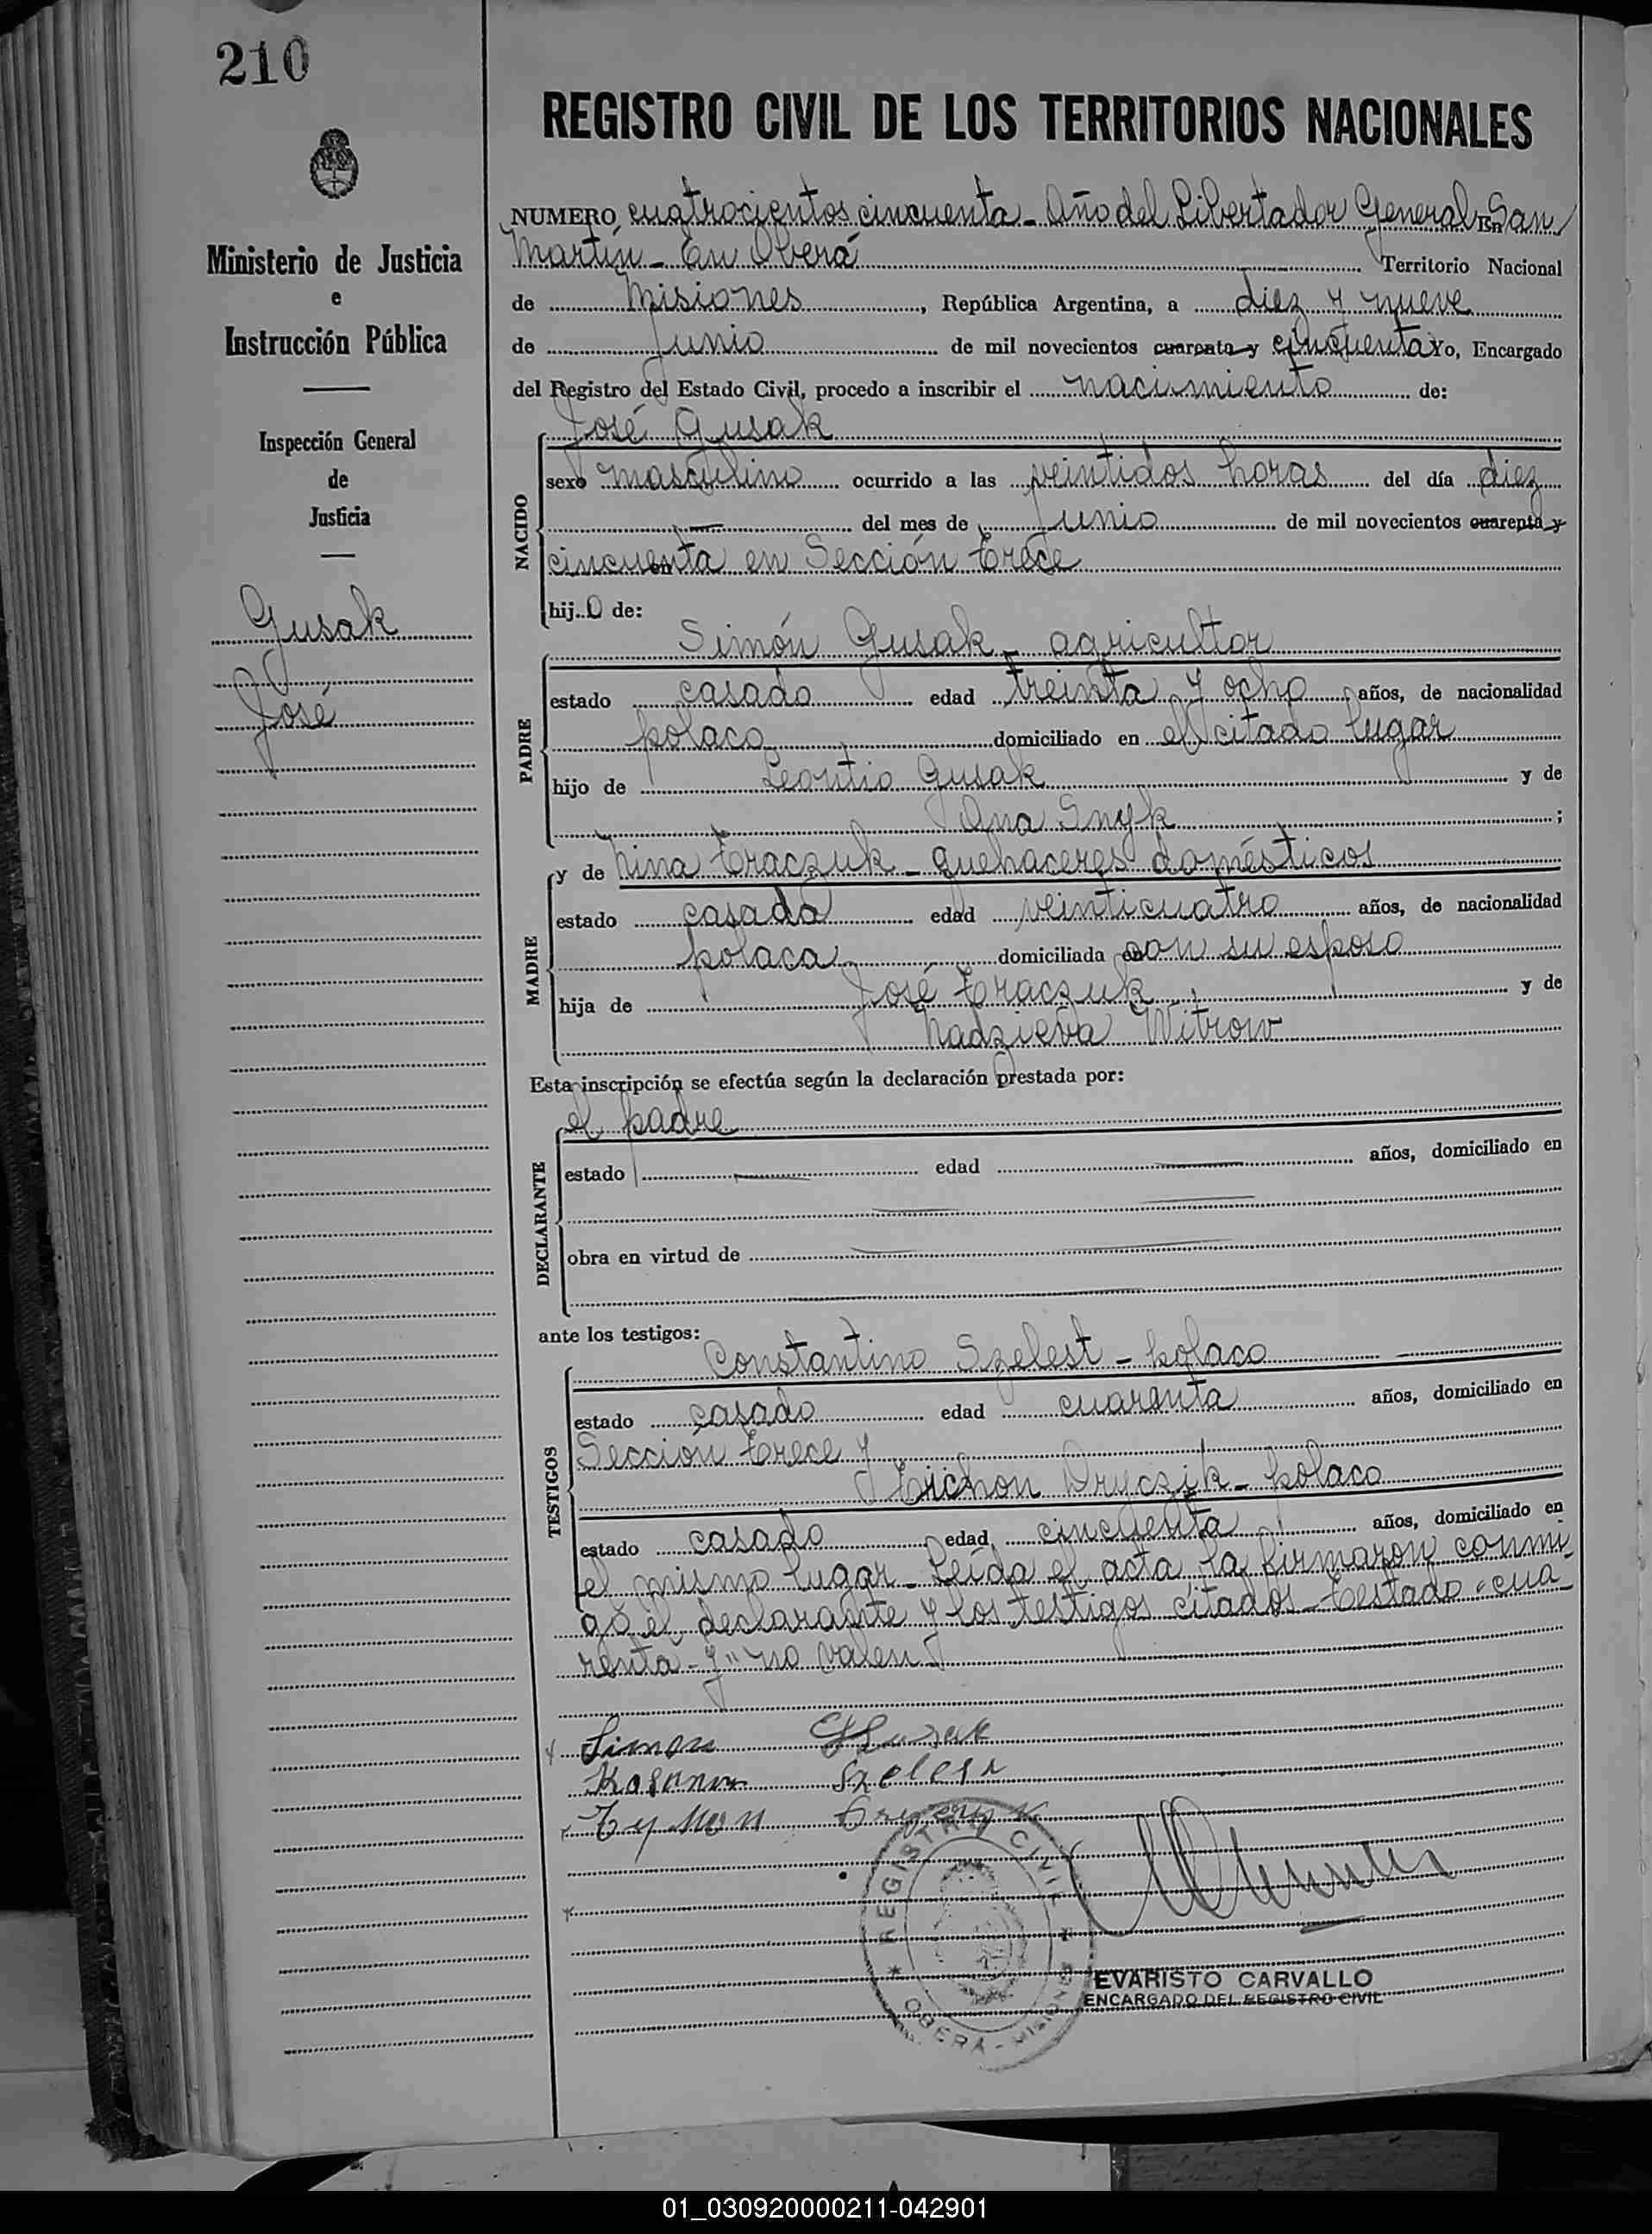 210
REGISTRO CIVIL DE LOS TERRITORIOS NACIONALES
Ministerio de Justicia
e
Instrucción Pública
Inspección General
de
Justicia
Gusak
José
NUMERO cuatrocientos cincuenta - Año del Libertador General En San
Martín - En Oberá Territorio Nacional
de Misiones, República Argentina, a diez y nueve
de Junio de mil novecientos cuarenta y cincuenta Yo, Encargado
del Registro del Estado Civil, procedo a inscribir el nacimiento de:
José Gusak
NACIDO
sexo masculino ocurrido a las veintidos horas del día diez
— del mes de Junio de mil novecientos cuarenta y
cincuenta en Sección Trece
hijo de:
Simón Gusak - agricultor
PADRE
estado casado edad treinta y ocho años, de nacionalidad
polaco domiciliado en el citado lugar
hijo de Leontio Gusak y de
Ana Snyk ;
y de Nina Traczuk - quehaceres domésticos
MADRE
estado casada edad veinticuatro años, de nacionalidad
polaca domiciliada con su esposo
hija de José Traczuk y de
Nadzieva Witrow
Esta inscripción se efectúa según la declaración prestada por:
el padre
DECLARANTE
estado — edad — años, domiciliado en
obra en virtud de
ante los testigos:
Constantino Szelest - polaco
TESTIGOS
estado casado edad cuarenta años, domiciliado en
Sección Trece y
Tichon Dryczik - polaco
estado casado edad cincuenta años, domiciliado en
el mismo lugar - Leída el acta la firmaron conmi
go el declarante y los testigos citados - Testado "cua
renta - y" no valen
Simon Gusak
Szelest
REGISTRO CIVIL
OBERÁ - MISIONES
EVARISTO CARVALLO
ENCARGADO DEL REGISTRO CIVIL
01_030920000211-042901